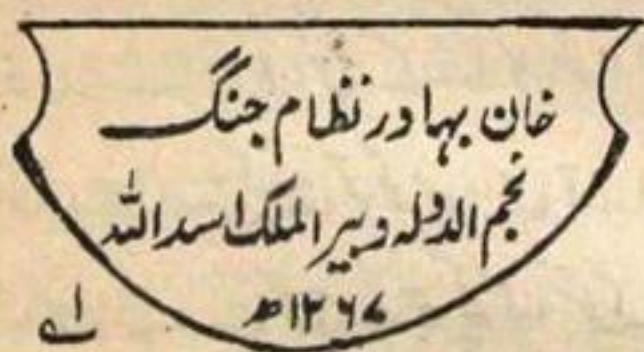 خان بہادر نظام جنگ
نجم الدولہ دبیر الملک اسد اللہ
۱۲۶۷ھ
اے